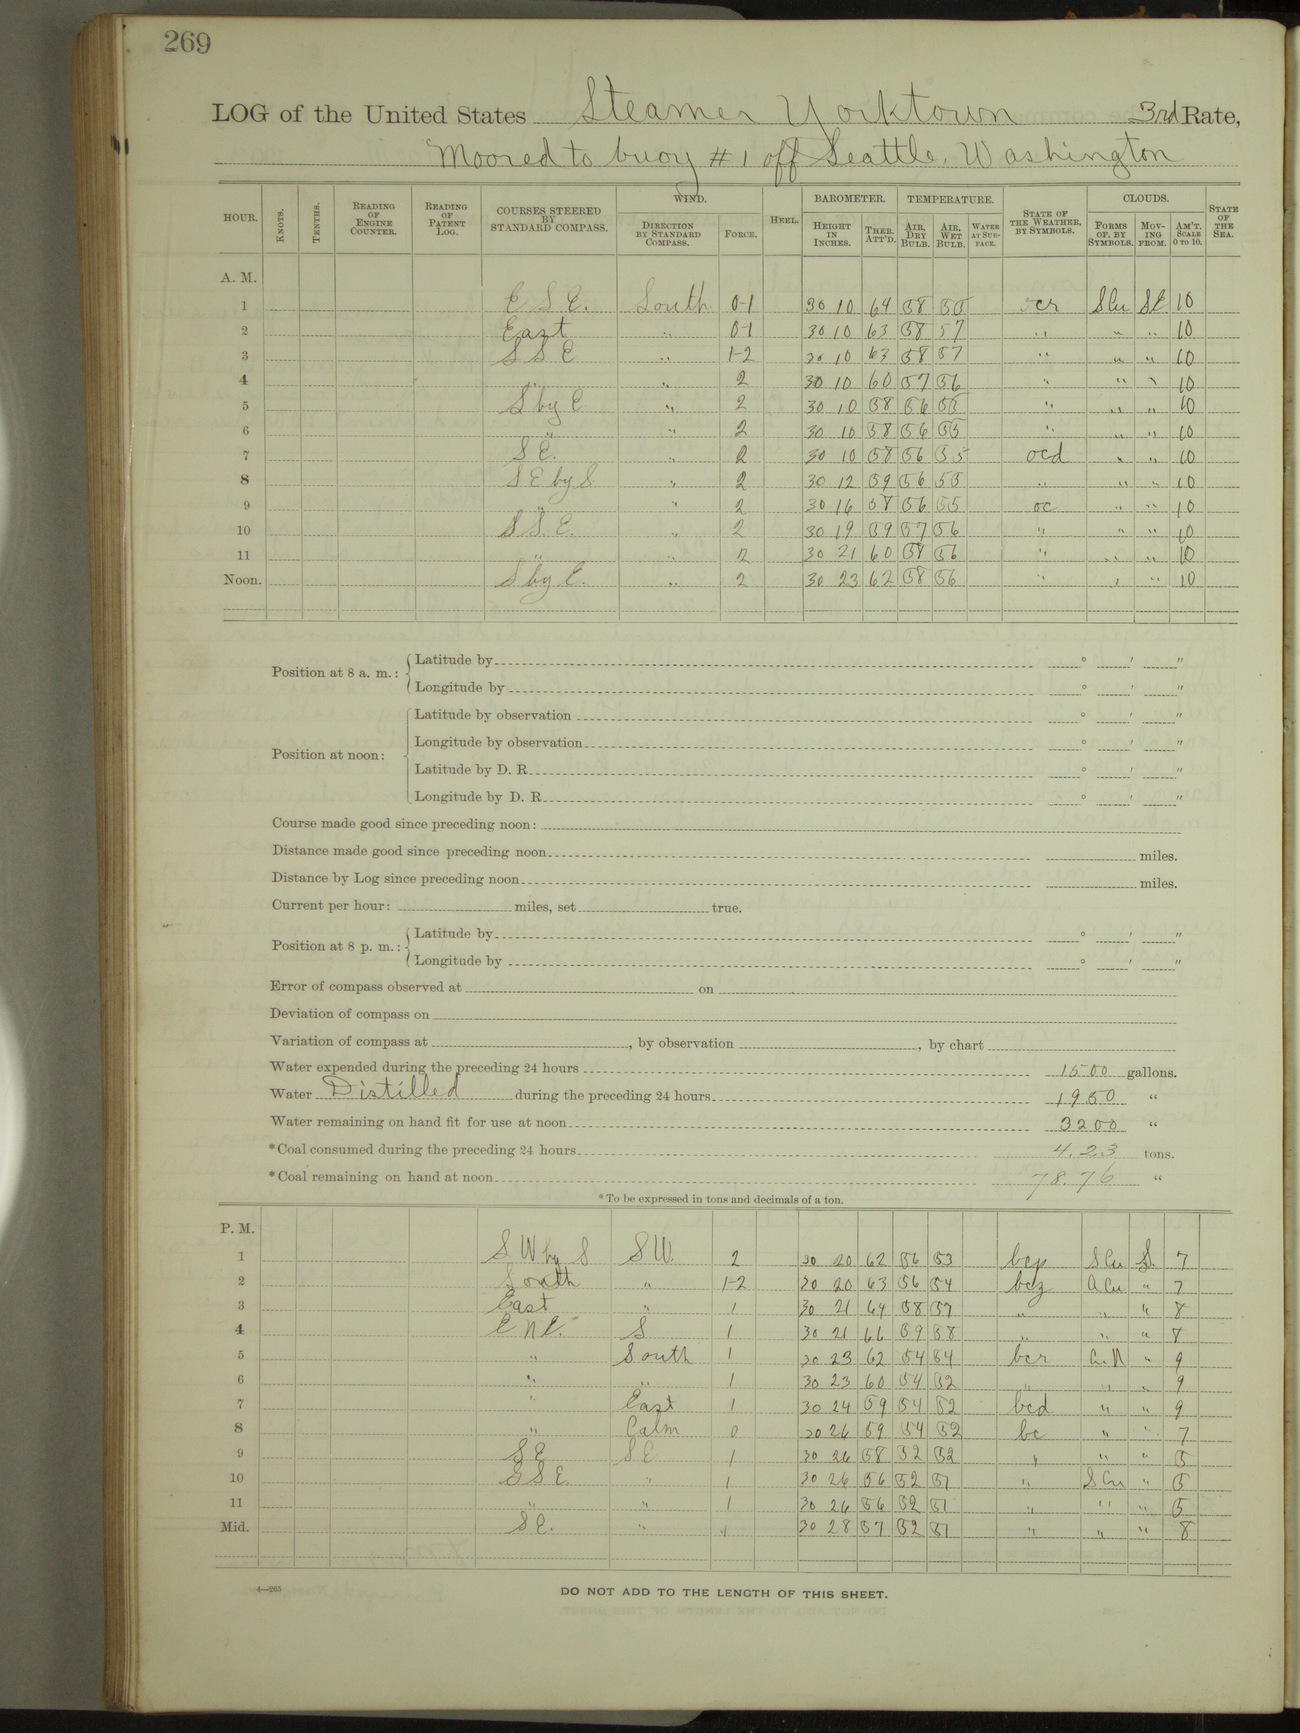 269
LOG of the United States Steamer Yorktown 3rd Rate,
Moored to buoy #1 off Seattle, Washington
HOUR. KNOTS. TENTHS. READING OF ENGINE COUNTER. READING OF PATENT LOG. COURSES STEERED BY STANDARD COMPASS. WIND. DIRECTION BY STANDARD COMPASS. FORCE. HEEL. BAROMETER. HEIGHT IN INCHES. THER. ATT'D. TEMPERATURE. AIR, DRY BULB. AIR, WET BULB. WATER AT SURFACE. STATE OF THE WEATHER, BY SYMBOLS. CLOUDS. FORMS OF, BY SYMBOLS. MOVING FROM. AM'T, SCALE 0 TO 10. STATE OF THE SEA.
A. M.
1 E S E. South 0-1 30 10 64 58 55 ocr SCu SE 10
2 East " 0-1 30 10 63 58 57 " " " 10
3 S S E " 1-2 30 10 63 58 57 " " " 10
4 " " 2 30 10 60 57 56 " " " 10
5 S by E " 2 30 10 58 56 55 " " " 10
6 " " 2 30 10 58 56 55 " " " 10
7 S E. " 2 30 10 58 56 55 ocd " " 10
8 S E by S " 2 30 12 59 56 55 " " " 10
9 " " 2 30 16 58 56 55 oc " " 10
10 S S. E. " 2 30 19 59 57 56 " " " 10
11 " " 2 30 21 60 58 56 " " " 10
Noon. S by E. " 2 30 23 62 58 56 " " " 10
Position at 8 a. m.: Latitude by ° ′ ″
Longitude by ° ′ ″
Position at noon: Latitude by observation ° ′ ″
Longitude by observation ° ′ ″
Latitude by D. R. ° ′ ″
Longitude by D. R. ° ′ ″
Course made good since preceding noon:
Distance made good since preceding noon miles.
Distance by Log since preceding noon miles.
Current per hour: miles, set true.
Position at 8 p. m.: Latitude by ° ′ ″
Longitude by ° ′ ″
Error of compass observed at on
Deviation of compass on
Variation of compass at , by observation , by chart
Water expended during the preceding 24 hours 1500 gallons.
Water Distilled during the preceding 24 hours 1950 "
Water remaining on hand fit for use at noon 3200 "
*Coal consumed during the preceding 24 hours 4.23 tons.
*Coal remaining on hand at noon 78.76 "
*To be expressed in tons and decimals of a ton.
P. M.
1 S W by S S W. 2 30 20 62 56 53 bcp SCu S. 7
2 South " 1-2 30 20 63 56 54 bcz ACu " 7
3 East " 1 30 21 64 58 57 " " " 8
4 E N E. S 1 30 21 66 59 58 " " " 8
5 " South 1 30 23 62 54 54 bcr CuN " 9
6 " " 1 30 23 60 54 52 " " " 9
7 " East 1 30 24 59 54 52 bcd " " 9
8 " Calm 0 30 26 59 54 52 bc " " 7
9 S E S E 1 30 26 58 52 52 " " " 5
10 S S E. " 1 30 26 56 52 51 " SCu " 5
11 " " 1 30 26 56 52 51 " " " 5
Mid. S E. " 1 30 28 57 52 51 " " " 8
4—265
DO NOT ADD TO THE LENGTH OF THIS SHEET.